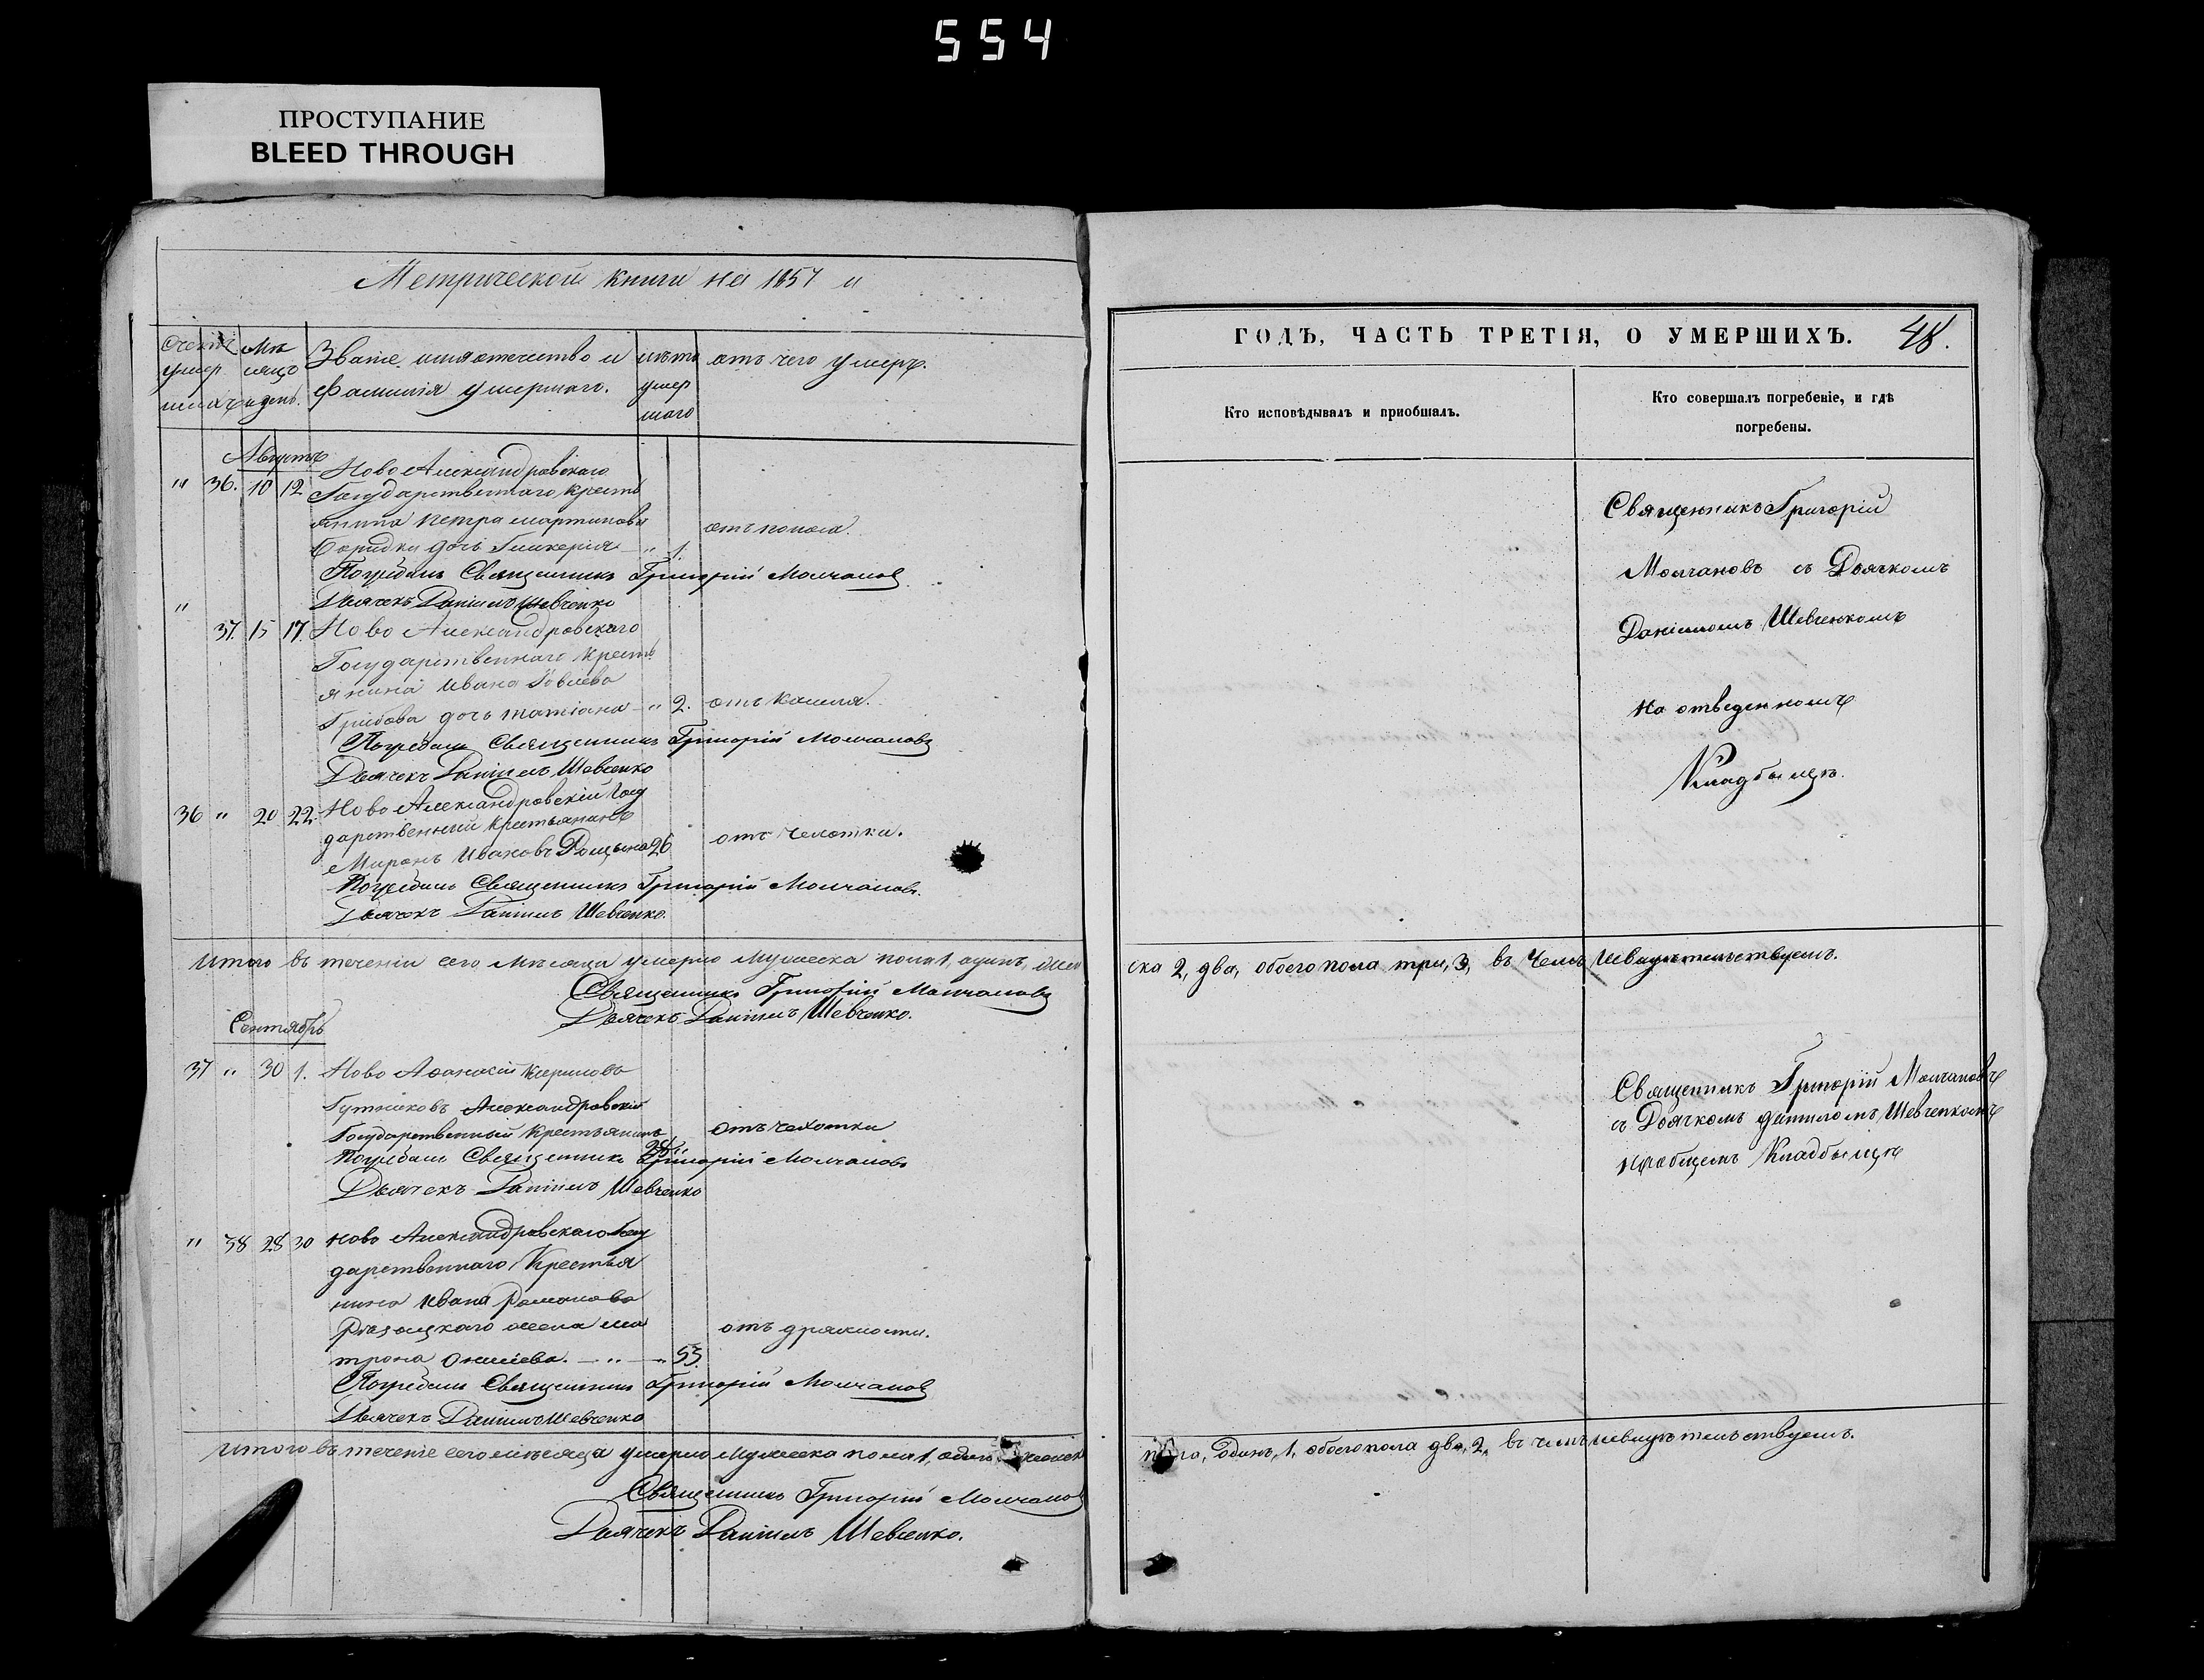 554
ПРОСТУПАНИЕ
BLEED THROUGH
Метрической книги на 1857 и
Счетъ умер шихъ
Мѣ сяцъ и день.
Званіе, имя отечество и фамилія умершаго.
лѣта умер шаго
отъ чего умеръ.
Августъ
" 36. 10 12 Ново Александровскаго
Государственнаго кресть
янина Петра Мартинова
дочь Гликерія " 1. отъ поноса.
Погребалъ Священникъ Григорій Молчановъ
Дьячекъ Даніилъ Шевченко
" 37. 15 17. Ново Александровскаго
Государственнаго кресть
янина Ивана
Грибова дочь Татіана " 2. отъ кашля.
Погребалъ Священникъ Григорій Молчановъ
Дьячекъ Даніилъ Шевченко
36 " 20 22. Ново Александровскій Госу
дарственный крестьянинъ
Миронъ Ивановъ 26 отъ чехотки.
Погребалъ Священникъ Григорій Молчановъ.
Дьячекъ Даніилъ Шевченко.
Итого въ теченіи сего мѣсяца умерло мужеска пола 1, одинъ, жен
Священникъ Григорій Молчановъ
Дьячекъ Даніилъ Шевченко.
Сентябрь
37 " 30 1. Ново Афанасій Кириловъ
Гутниковъ Александровскій
Государственный крестьянинъ отъ чехотки
Погребалъ Священникъ Григорій Молчановъ
Дьячекъ Даніилъ Шевченко
" 38 28 30 Ново Александровскаго Госу
дарственнаго Крестья
нина Ивана Романова
жена Ма отъ дряхлости.
трона " 53.
Погребалъ Священникъ Григорій Молчановъ
Дьячекъ Даніилъ Шевченко
Итого въ теченіе сего мѣсяца умерло мужеска пола 1, одинъ, женск
Священникъ Григорій Молчановъ
Дьячекъ Даніилъ Шевченко.
ГОДЪ, ЧАСТЬ ТРЕТІЯ, О УМЕРШИХЪ. 48.
Кто исповѣдывалъ и приобщалъ.
Кто совершалъ погребеніе, и гдѣ
погребены.
Священникъ Григорій
Молчановъ съ Дьячкомъ
Даніиломъ Шевченкомъ
На отведенномъ
Кладбищѣ.
ска 2, два, обоего пола три, 3, въ чемъ свидѣтельствуемъ.
Священникъ Григорій Молчановъ
съ Дьячкомъ Даниломъ Шевченкомъ
на общемъ Кладбищѣ
пола, одинъ, 1, обоего пола два, 2, въ чемъ свидѣтельствуемъ.